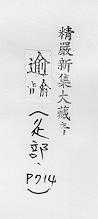 精嚴新集大藏音
逾
音俞
(辵部、
P714